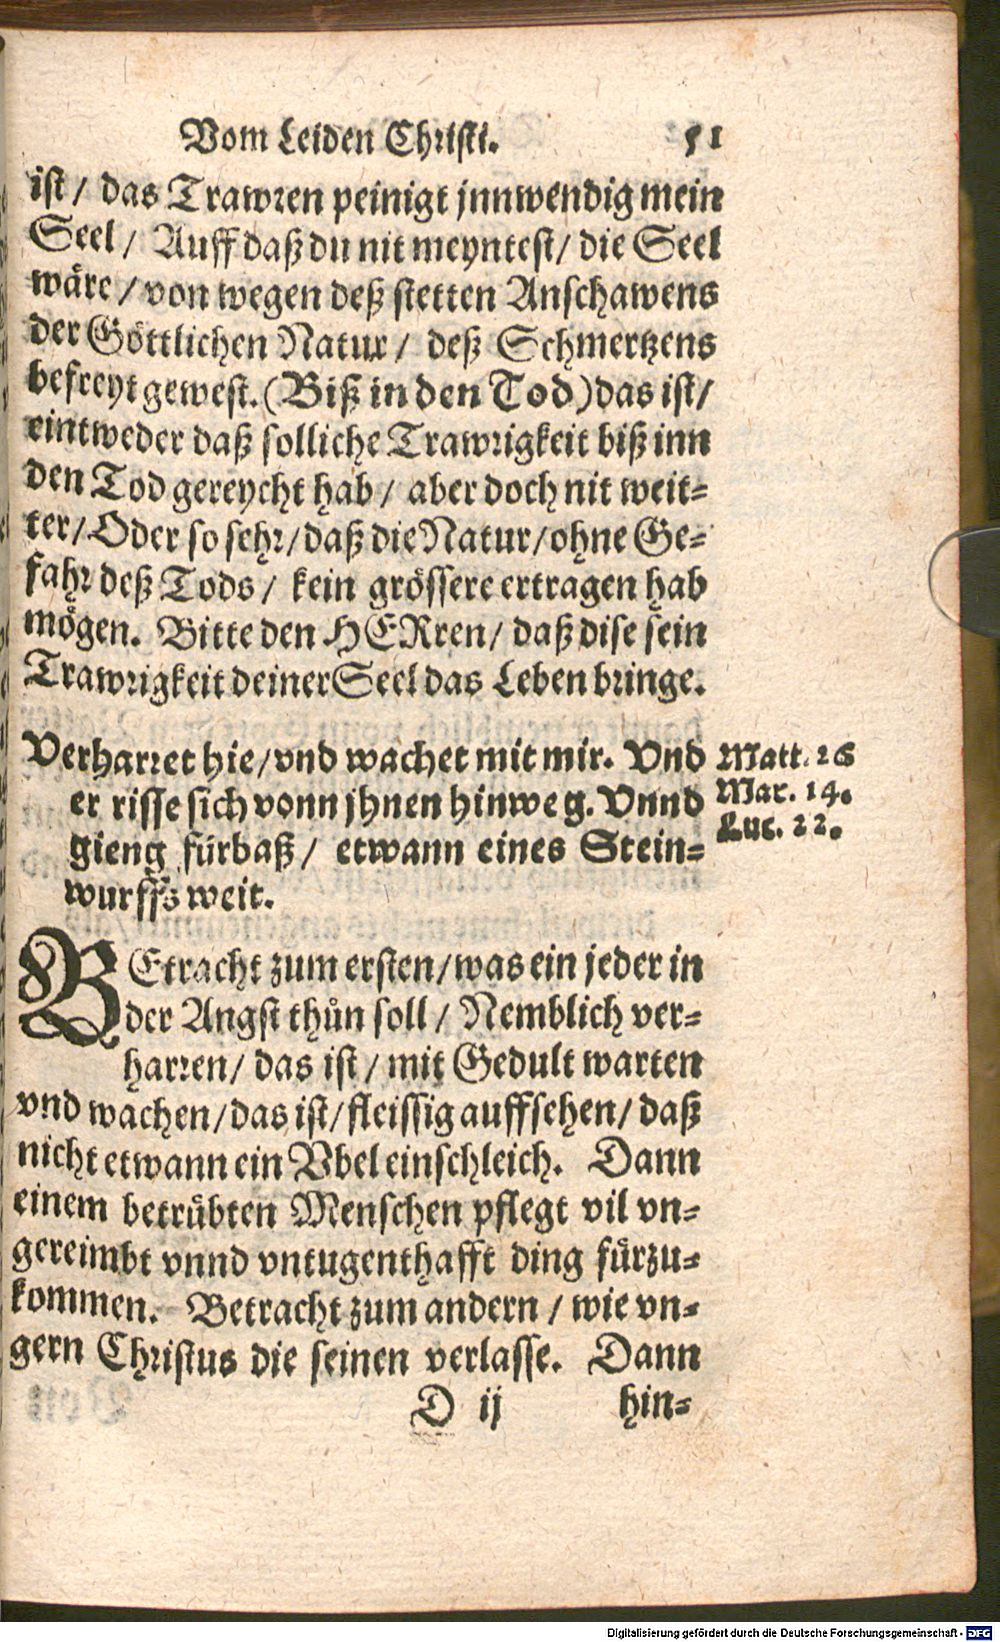 Vom Leiden Christi. 51
ist / das Trawren peinigt jnnwendig mein
Seel / Auff daß du nit meyntest / die Seel
wäre / von wegen deß stetten Anschawens
der Göttlichen Natur / deß Schmertzens
befreyt gewest. (Biß in den Tod) das ist /
eintweder daß solliche Trawrigkeit biß inn
den Tod gereycht hab / aber doch nit weit-
ter / Oder so sehr / daß die Natur / ohne Ge-
fahr deß Tods / kein grössere ertragen hab
mögen. Bitte den HERren / daß dise sein
Trawrigkeit deiner Seel das Leben bringe.
Verharret hie / vnd wachet mit mir. Vnd
er risse sich vonn jhnen hinweg. Vnnd
gieng fürbaß / etwann eines Stein-
wurffs weit.
Matt. 26
Mar. 14.
Luc. 22.
BEtracht zum ersten / was ein jeder in
der Angst thůn soll / Nemblich ver-
harren / das ist / mit Gedult warten
vnd wachen / das ist / fleissig auffsehen / daß
nicht etwann ein Vbel einschleich. Dann
einem betrůbten Menschen pflegt vil vn-
gereimbt vnnd vntugenthafft ding fůrzu-
kommen. Betracht zum andern / wie vn-
gern Christus die seinen verlasse. Dann
D ij hin-
Digitalisierung gefördert durch die Deutsche Forschungsgemeinschaft - DFG